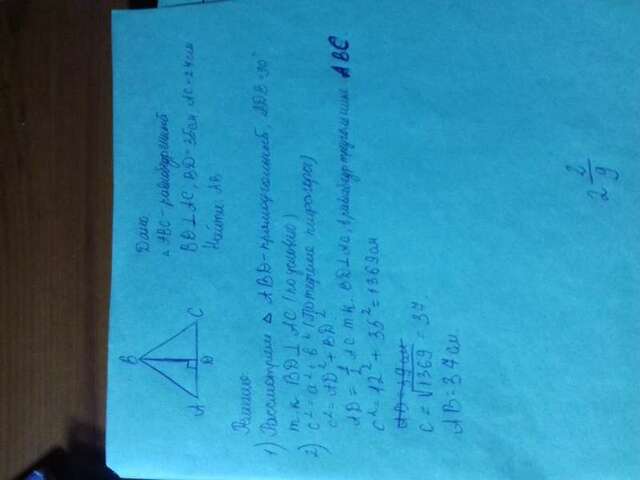 B
A
D
C
Дано
△ ABC - равнобедренный
BD ⊥ AC, BD = 35см AC = 24см
Найти: AB
Решение:
1) Рассмотрим △ ABD - прямоугольный, ∠ADB = 90°
т.к. BD ⊥ AC (по условию)
2) c² = a² + b² (По теореме пифагора)
c² = AD² + BD²
AD = 1/2 AC т.к. BD ⊥ AC, в равнобедр треугольнике ABC.
c² = 12² + 35² = 1369см
c = √1369 = 37.
AB = 37см.
2 2/9